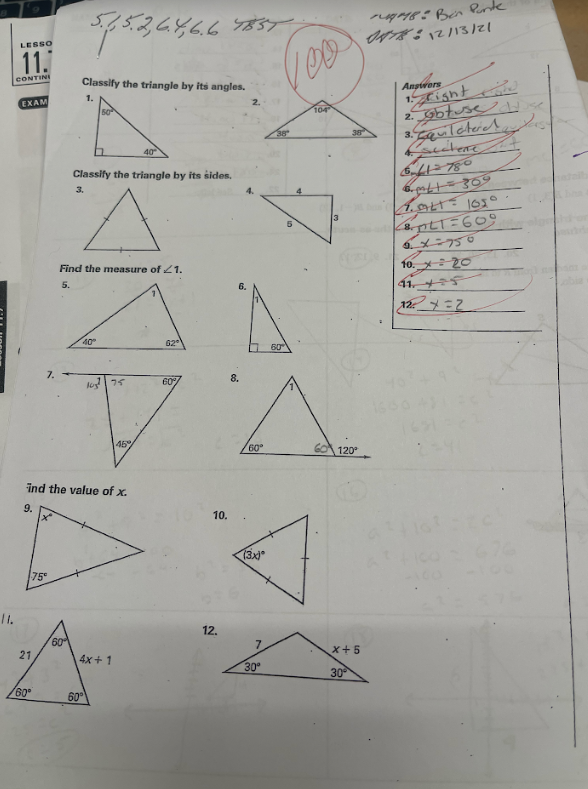 5.1, 5.2, 6.4, 6.6 TEST
NAME: Ben
DATE: 12/13/21
100
LESSO
11.
CONTIN
EXAM
Classify the triangle by its angles.
1.
50°
40°
2.
104°
38°
38°
Classify the triangle by its sides.
3.
4.
4
3
5
Find the measure of ∠1.
5.
1
40°
62°
6.
1
60°
7.
105° 1 75 60°
45°
8.
1
60°
60° 120°
ind the value of x.
9.
x°
75°
10.
(3x)°
11.
60°
21
4x + 1
60°
60°
12.
7
x + 5
30°
30°
Answers
1. right
2. obtuse
3. equilateral
4. scalene
5. ∠1 = 78°
6. m∠1 = 30°
7. m∠1 = 105°
8. m∠1 = 60°
9. x = 75°
10. x = 20
11. x = 5
12. x = 2